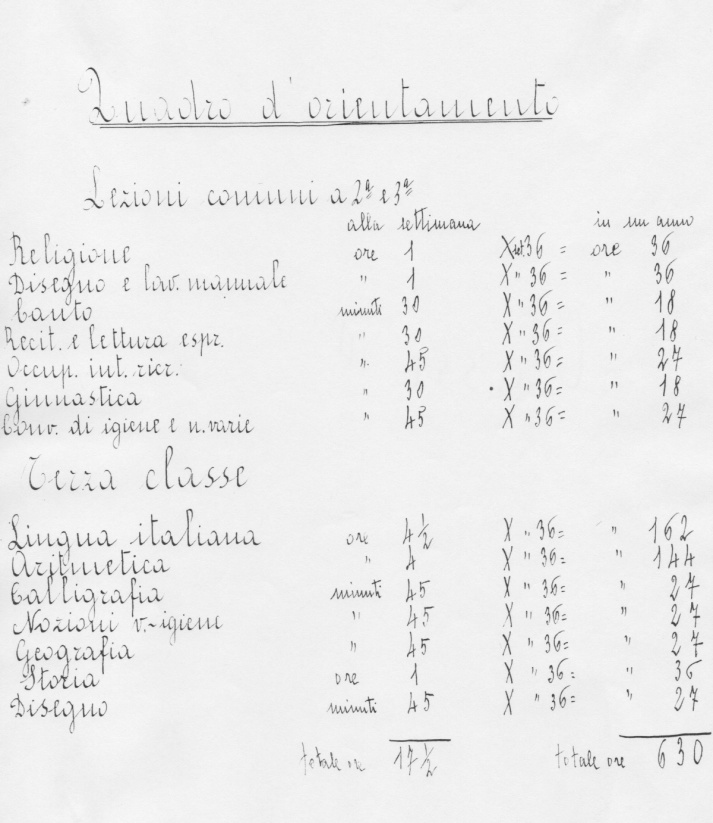 Quadro d'orientamento
Lezioni comuni a 2ª e 3ª
alla settimana in un anno
Religione ore 1 X set 36 = ore 36
Disegno e lav. manuale " 1 X " 36 = " 36
Canto minuti 30 X " 36 = " 18
Recit. e lettura espr. " 30 X " 36 = " 18
Occup. int. ricr. " 45 X " 36 = " 27
Ginnastica " 30 X " 36 = " 18
Conv. di igiene e n. varie " 45 X " 36 = " 27
Terza classe
Lingua italiana ore 4½ X " 36 = " 162
Aritmetica " 4 X " 36 = " 144
Calligrafia minuti 45 X " 36 = " 27
Nozioni v.-igiene " 45 X " 36 = " 27
Geografia " 45 X " 36 = " 27
Storia ore 1 X " 36 = " 36
Disegno minuti 45 X " 36 = " 27
totale ore 17½ totale ore 630